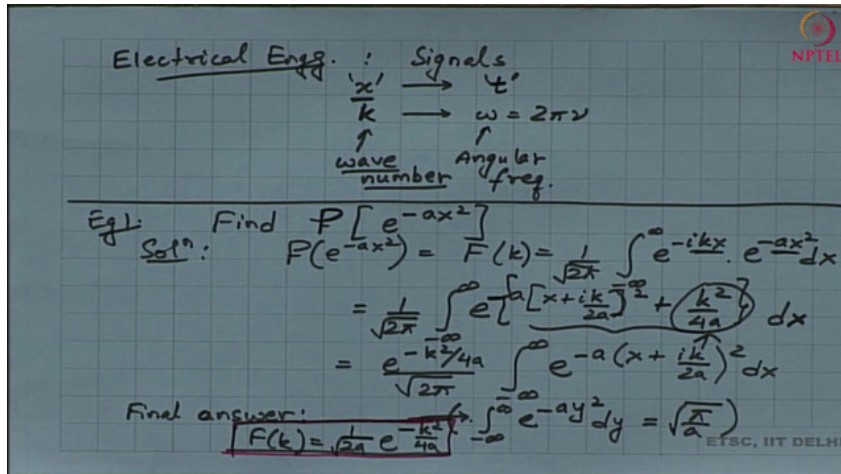 Electrical Engg. : Signals
NPTEL
'x' → 't'
k → ω = 2πν
↑ ↑
wave number Angular freq.
Eg1. Find F[e^{-ax²}]
Solⁿ: F(e^{-ax²}) = F(k) = 1/√2π ∫_{-∞}^{∞} e^{-ikx} . e^{-ax²} dx
= 1/√2π ∫_{-∞}^{∞} e^{-[a[x + ik/2a]² + k²/4a]} dx
= e^{-k²/4a}/√2π ∫_{-∞}^{∞} e^{-a(x + ik/2a)²} dx
Final answer:
F(k) = 1/√2a e^{-k²/4a} (∵ ∫_{-∞}^{∞} e^{-ay²} dy = √π/a)
ETSC, IIT DELHI